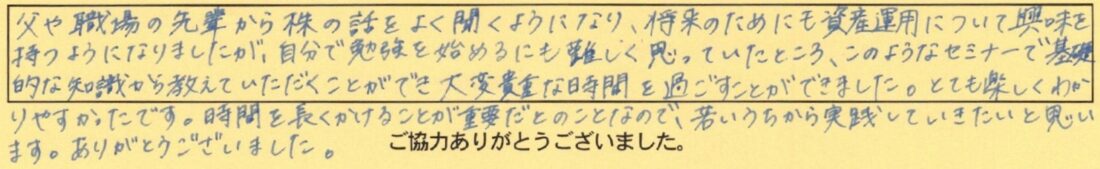 父や職場の先輩から株の話をよく聞くようになり、将来のためにも資産運用について興味を
持つようになりましたが、自分で勉強を始めるにも難しく思っていたところ、このようなセミナーで基礎
的な知識から教えていただくことができ大変貴重な時間を過ごすことができました。とても楽しくわか
りやすかったです。時間を長くかけることが重要だとのことなので、若いうちから実践していきたいと思い
ます。ありがとうございました。
ご協力ありがとうございました。